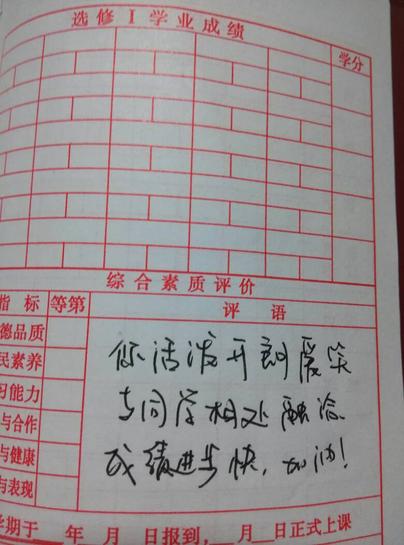 选修I学业成绩
学分
综合素质评价
指标 等第 评语
德品质
民素养
习能力
与合作
与健康
与表现
你活泼开朗爱笑
与同学相处融洽
成绩进步快，加油！
学期于 年 月 日报到， 月 日正式上课